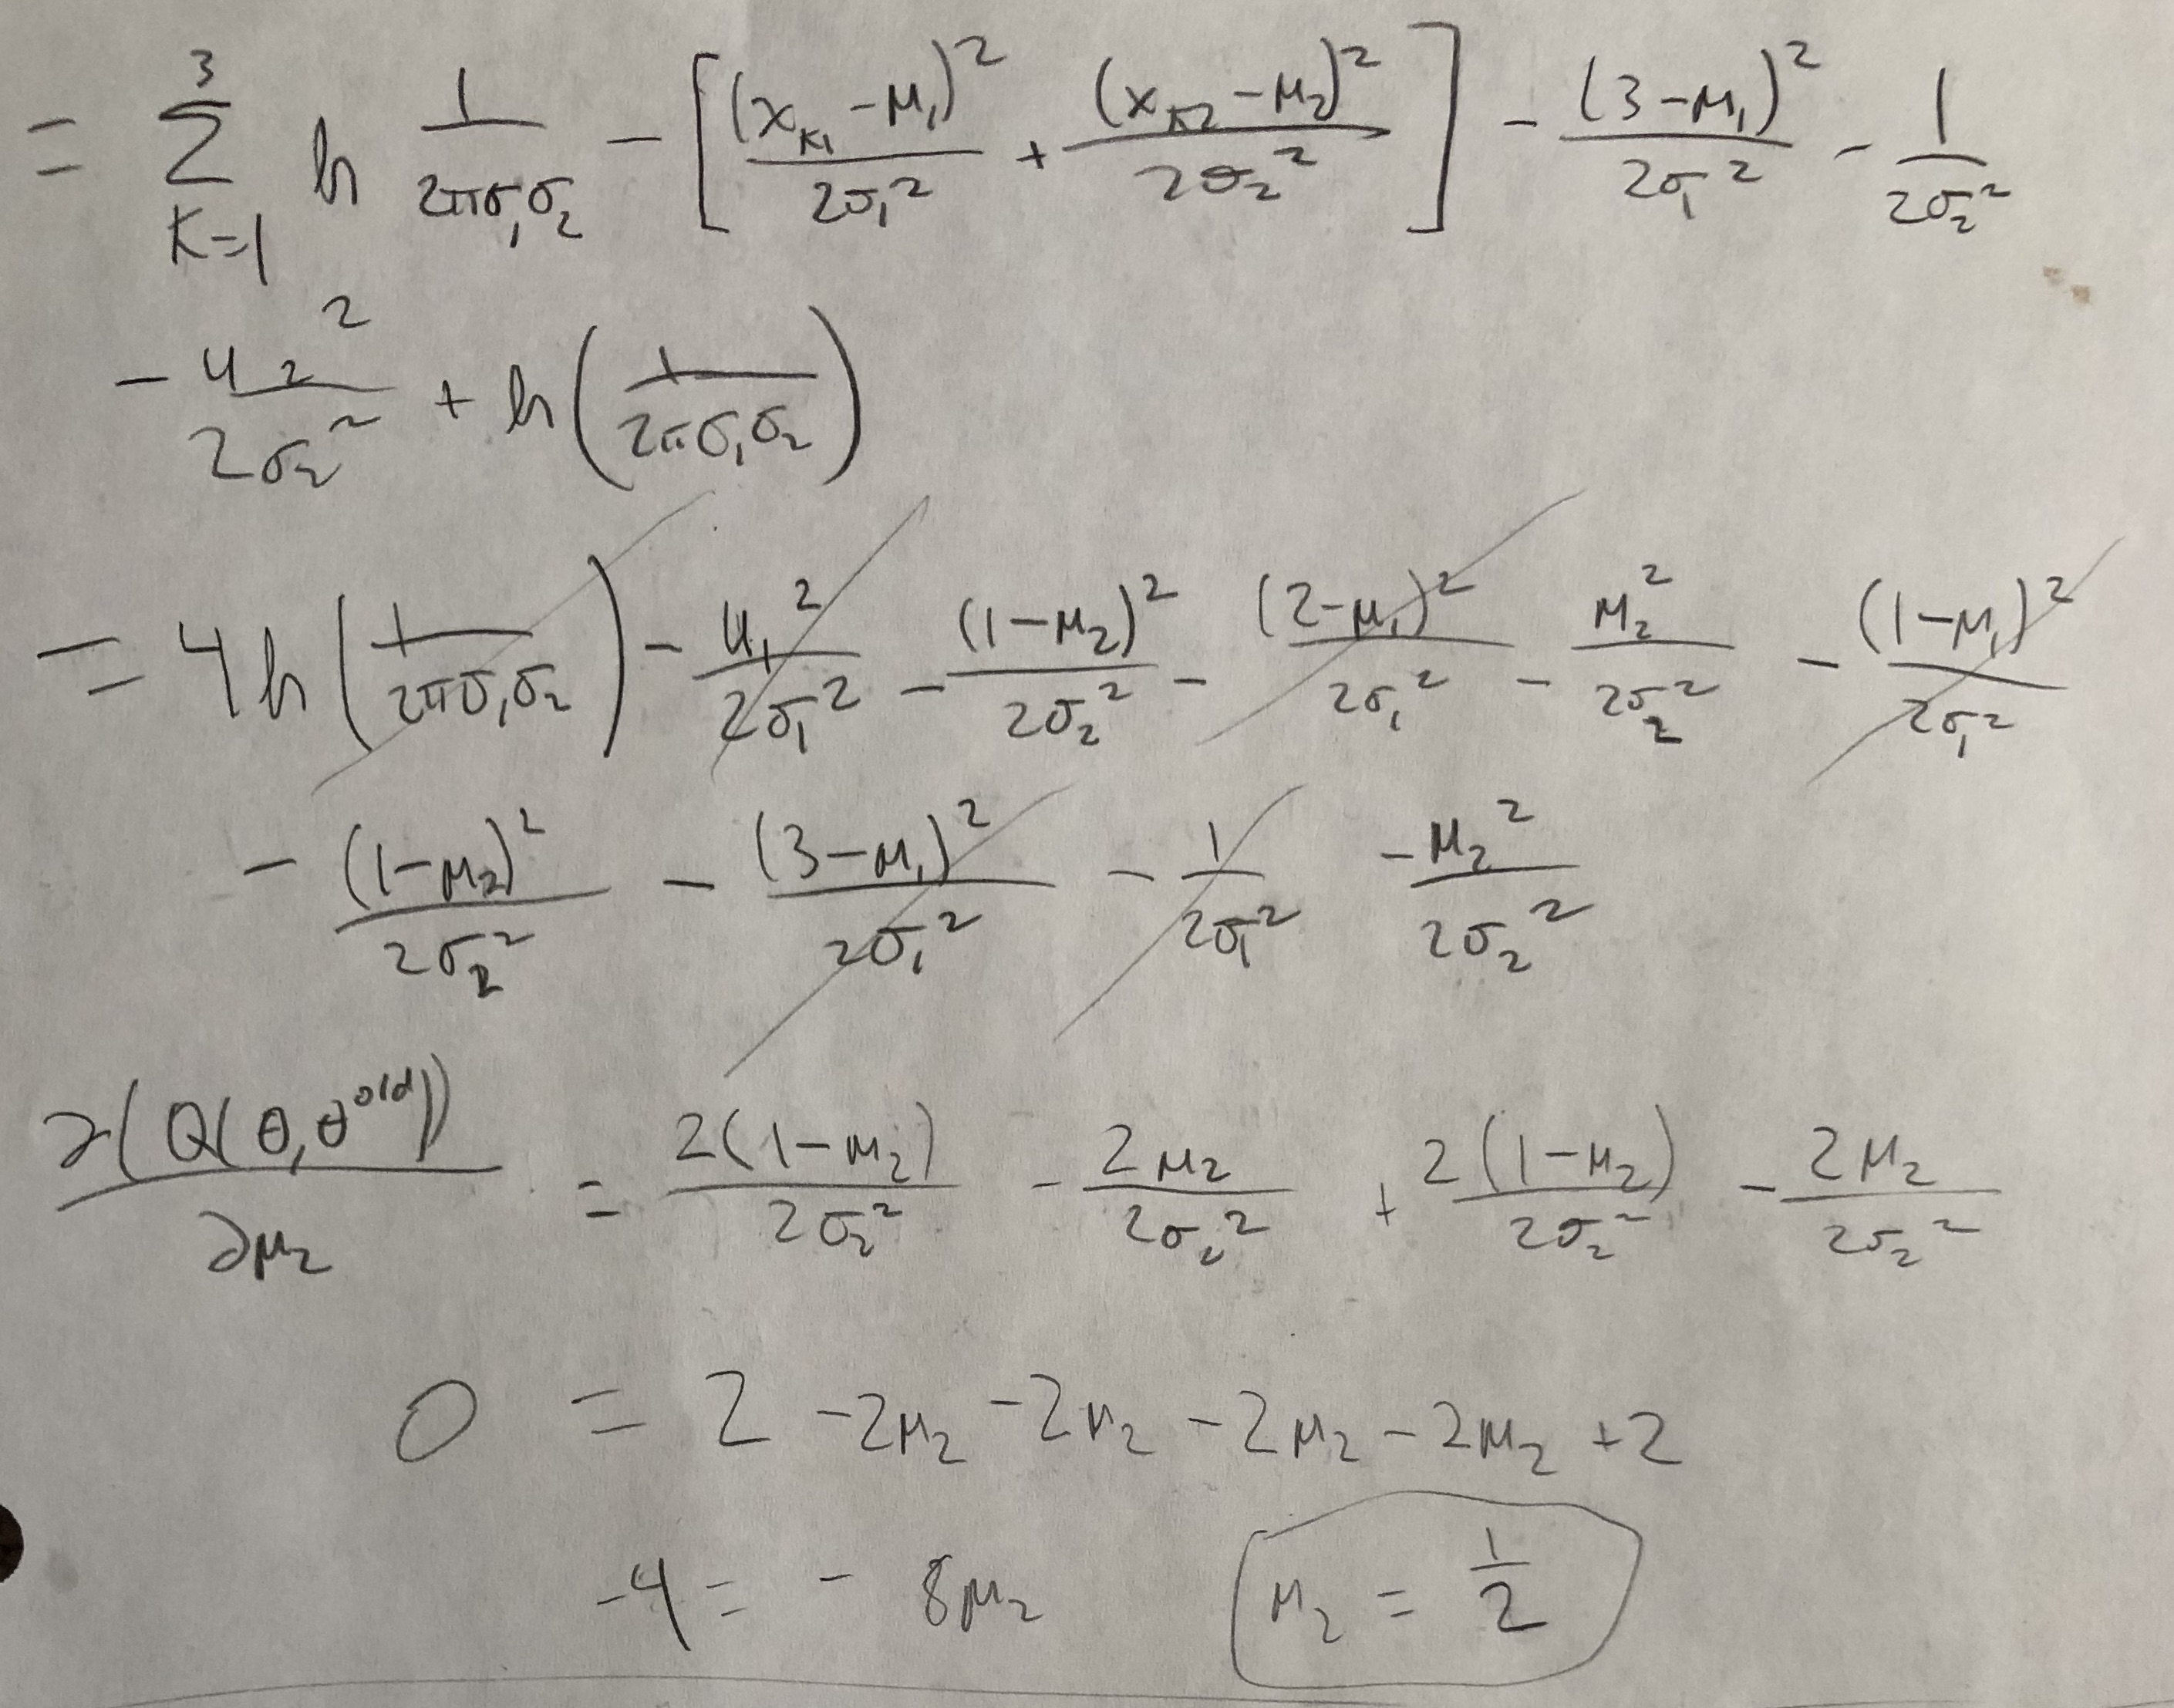 = Σ_{K=1}^{3} ln 1/(2πσ₁σ₂) - [(x_{K1} - μ₁)²/(2σ₁²) + (x_{K2} - μ₂)²/(2σ₂²)] - (3-μ₁)²/(2σ₁²) - 1/(2σ₂²)
- μ₂²/(2σ₂²) + ln(1/(2πσ₁σ₂))
= 4 ln(1/(2πσ₁σ₂)) - μ₁²/(2σ₁²) - (1-μ₂)²/(2σ₂²) - (2-μ₁)²/(2σ₁²) - μ₂²/(2σ₂²) - (1-μ₁)²/(2σ₁²)
- (1-μ₂)²/(2σ₂²) - (3-μ₁)²/(2σ₁²) - 1/(2σ₁²) -μ₂²/(2σ₂²)
∂(Q(θ,θ^{old}))/∂μ₂ = 2(1-μ₂)/(2σ₂²) - 2μ₂/(2σ₂²) + 2(1-μ₂)/(2σ₂²) - 2μ₂/(2σ₂²)
0 = 2 - 2μ₂ - 2μ₂ - 2μ₂ - 2μ₂ + 2
-4 = - 8μ₂ μ₂ = 1/2